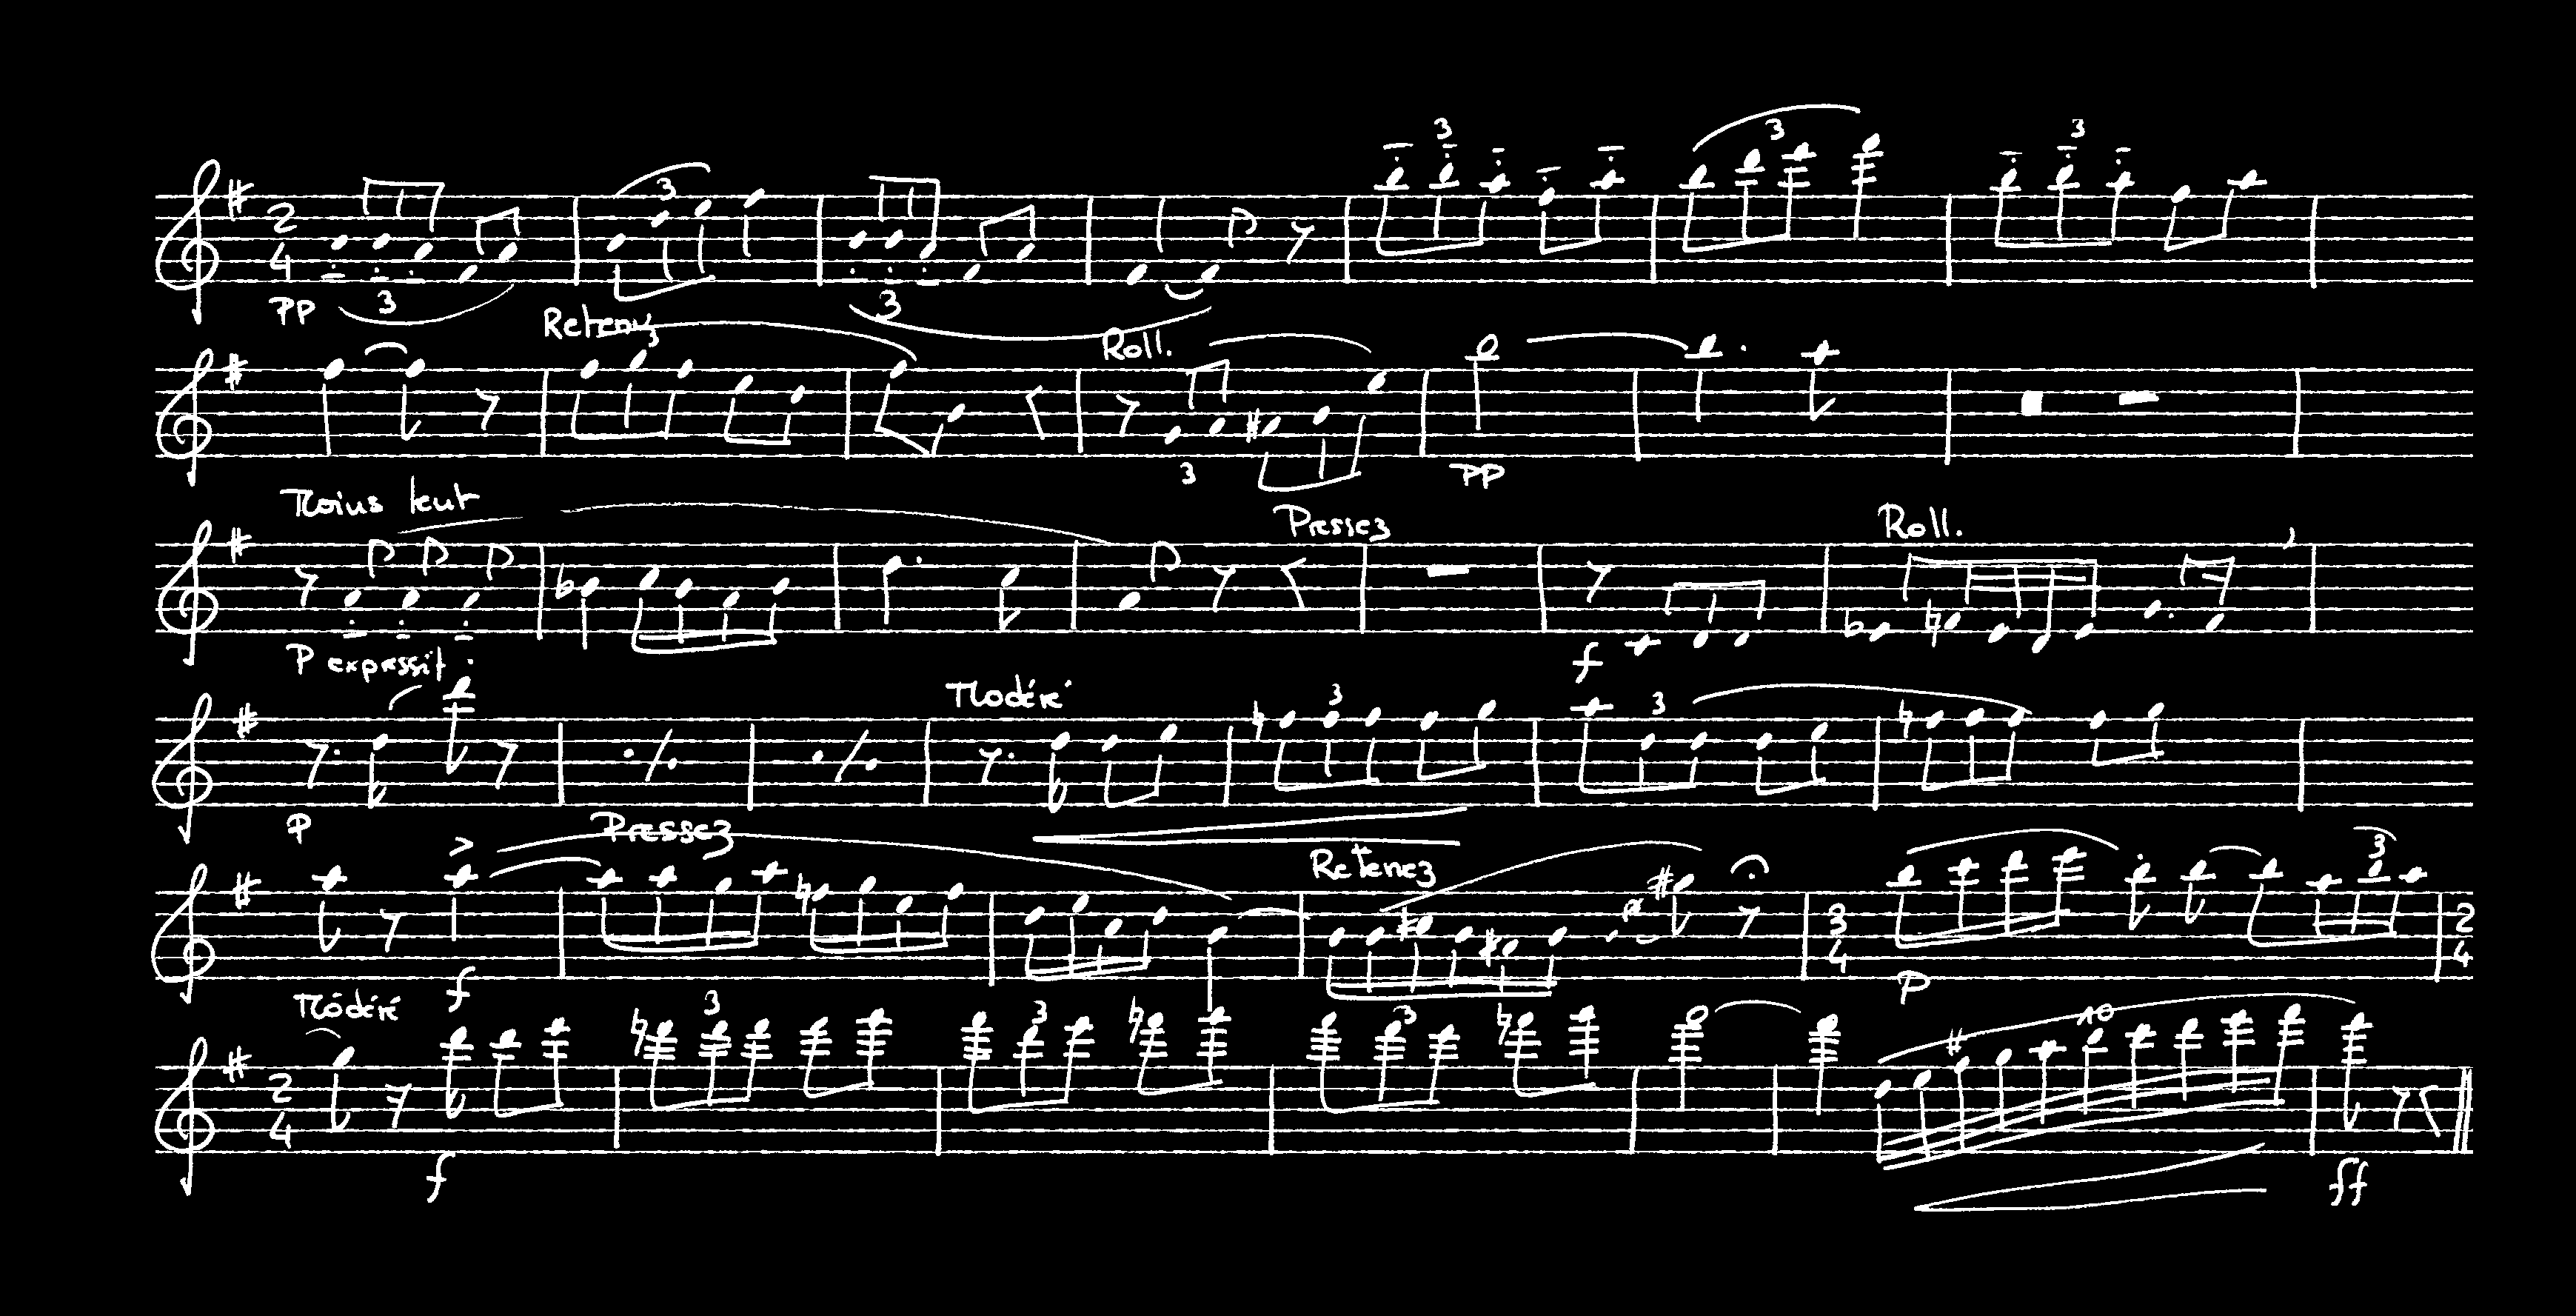 2 4 3 3 3 3 3 3
PP
Retenez Roll.
3 PP
Moins lent Pressez Roll.
P expressif f
Modéré 3 3
P
Pressez Retenez 3
3 4 2 4
f P
Modéré 3 3 3 10
2 4
f ff